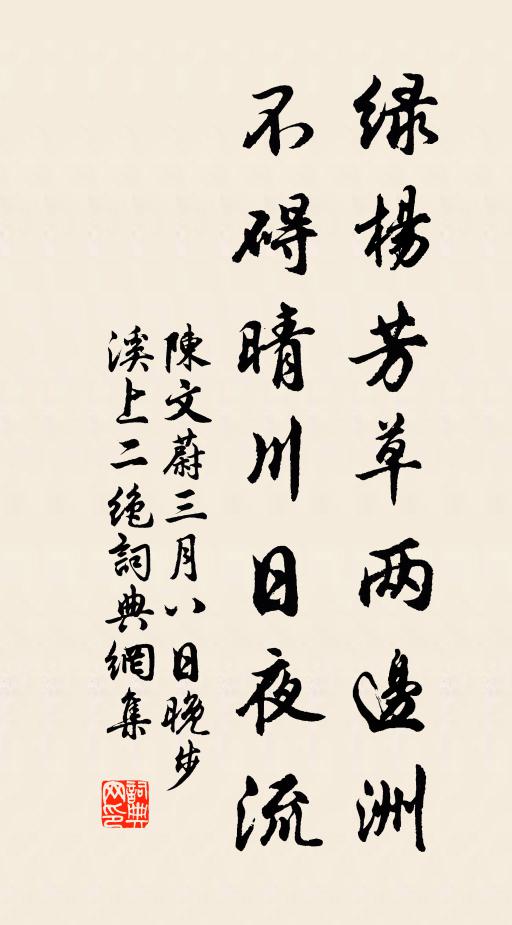 绿楊芳草两邊洲
不碍晴川日夜流
陳文蔚三月八日晚步
溪上二绝詞典網集
詞典
网印